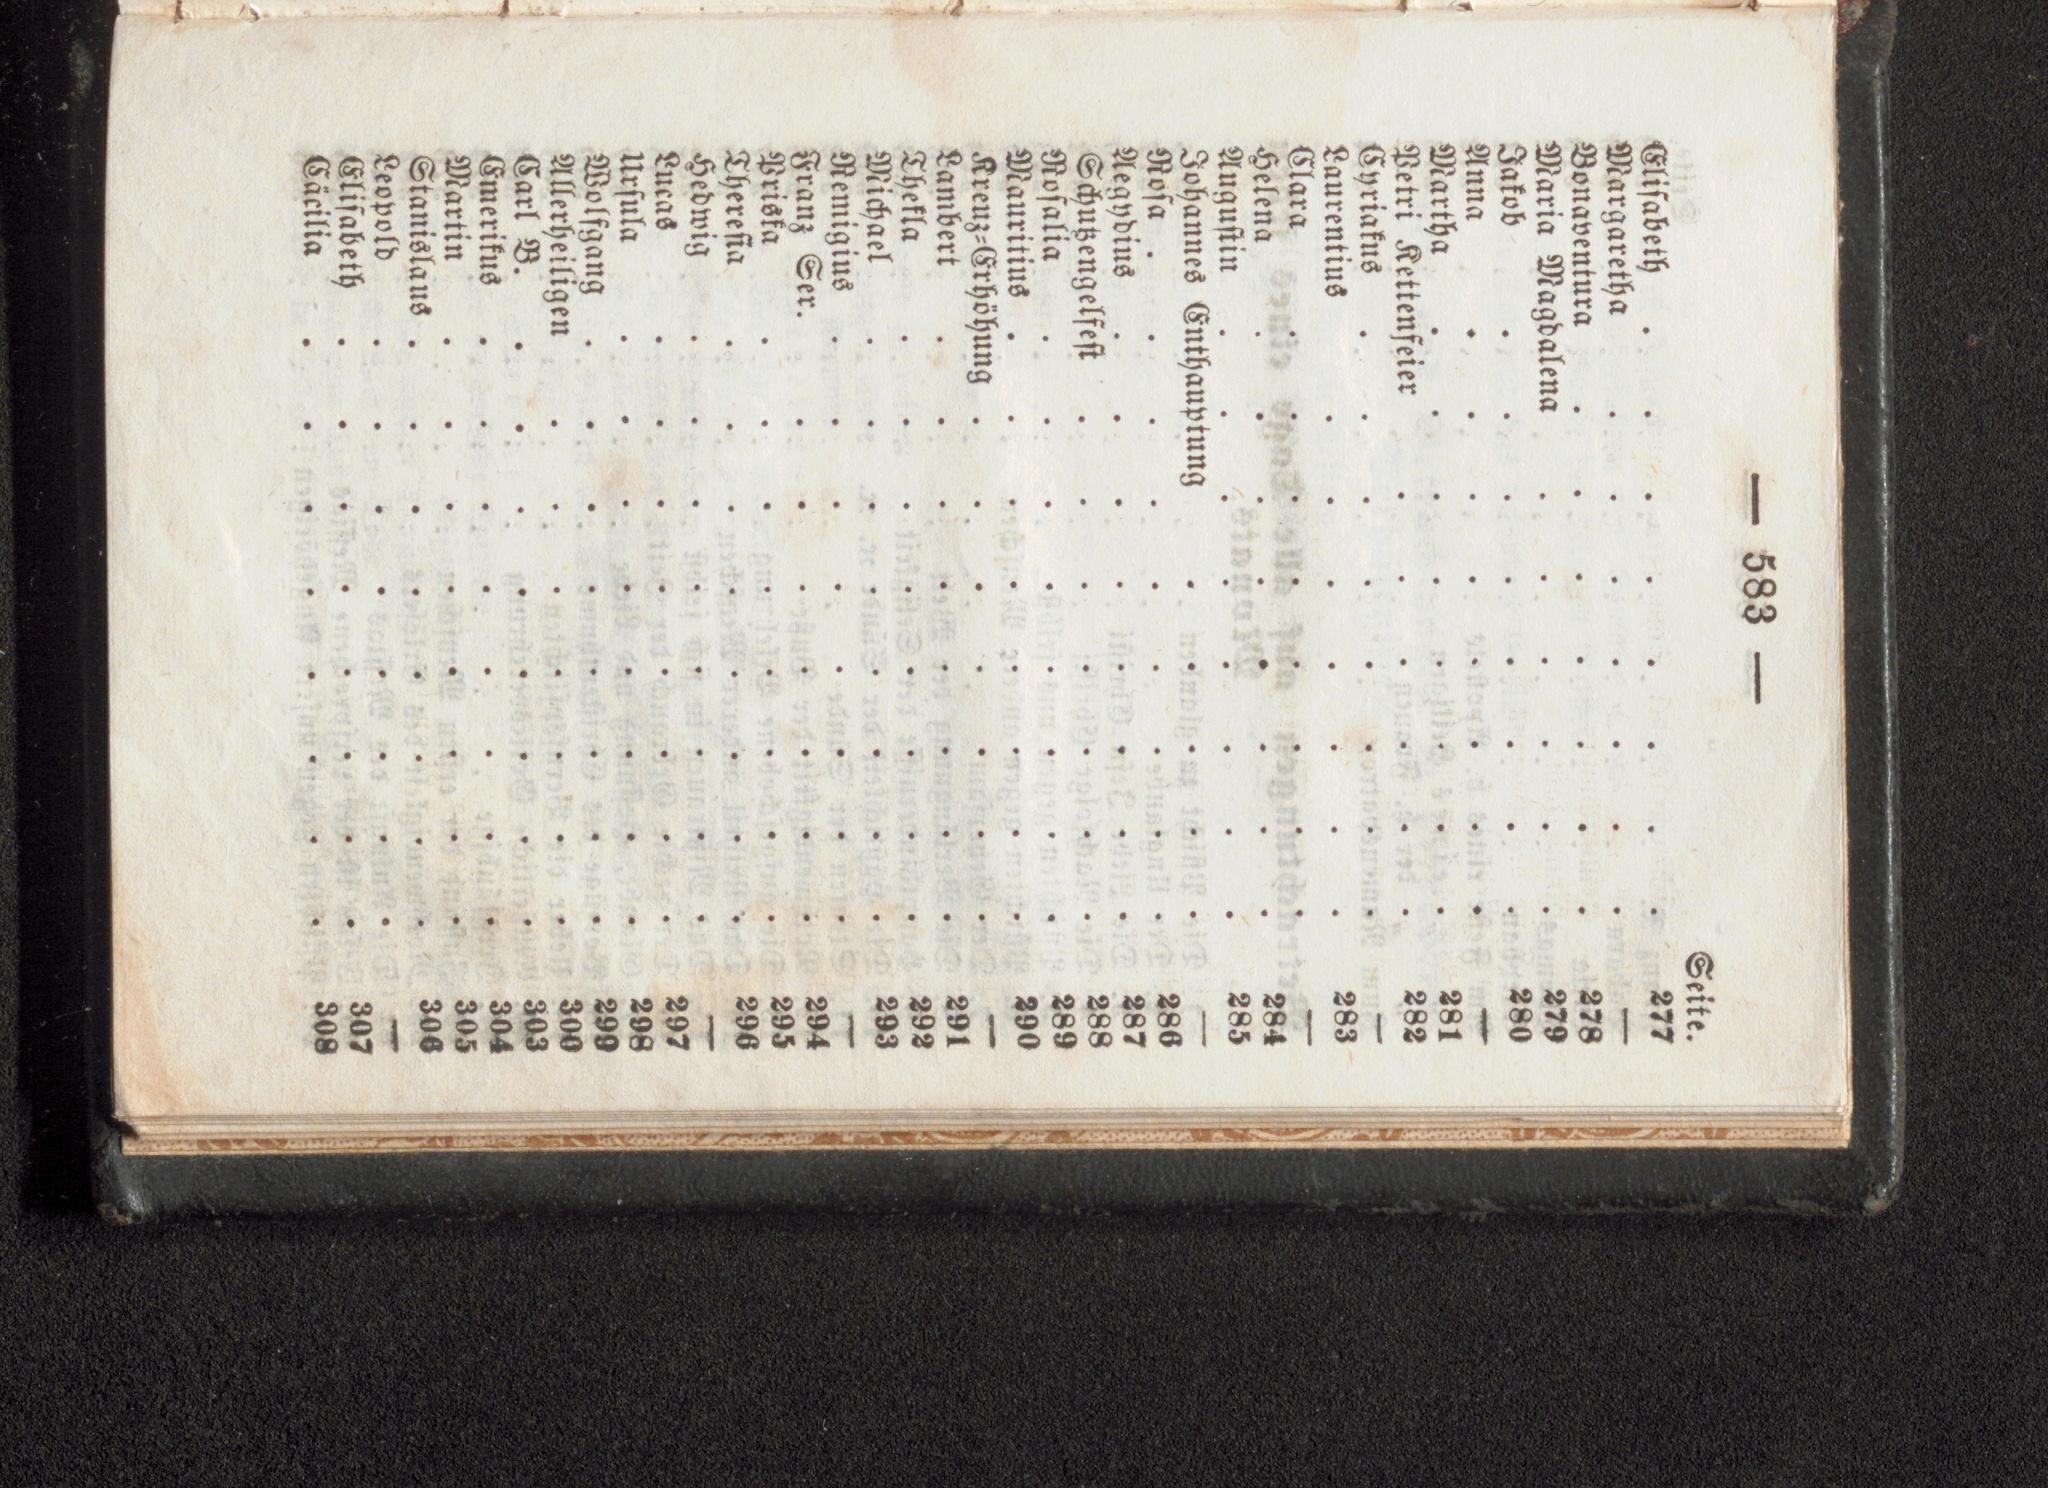 — 583 —
Seite.
Elisabeth . . . . . . . . 277
Margaretha . . . . . . . —
Bonaventura . . . . . . . 278
Maria Magdalena . . . . . . 279
Jakob . . . . . . . . 280
Anna . . . . . . . . —
Martha . . . . . . . . 281
Petri Kettenfeier . . . . . . 282
Cyriakus . . . . . . . . —
Laurentius . . . . . . . 283
Clara . . . . . . . . —
Helena . . . . . . . . 284
Augustin . . . . . . . . 285
Johannes Enthauptung . . . . . —
Rosa . . . . . . . . . 286
Aegydius . . . . . . . . 287
Schutzengelfest . . . . . . . 288
Rosalia . . . . . . . . 289
Mauritius . . . . . . . . 290
Kreuz-Erhöhung . . . . . . . —
Lambert . . . . . . . . 291
Thekla . . . . . . . . 292
Michael . . . . . . . . 293
Remigius . . . . . . . . —
Franz Ser. . . . . . . . 294
Priska . . . . . . . . 295
Theresia . . . . . . . . 296
Hedwig . . . . . . . . —
Lucas . . . . . . . . 297
Ursula . . . . . . . . 298
Wolfgang . . . . . . . . 299
Allerheiligen . . . . . . . 300
Carl B. . . . . . . . . 303
Emerikus . . . . . . . . 304
Martin . . . . . . . . 305
Stanislaus . . . . . . . . 306
Leopold . . . . . . . . —
Elisabeth . . . . . . . . 307
Cäcilia . . . . . . . . 308